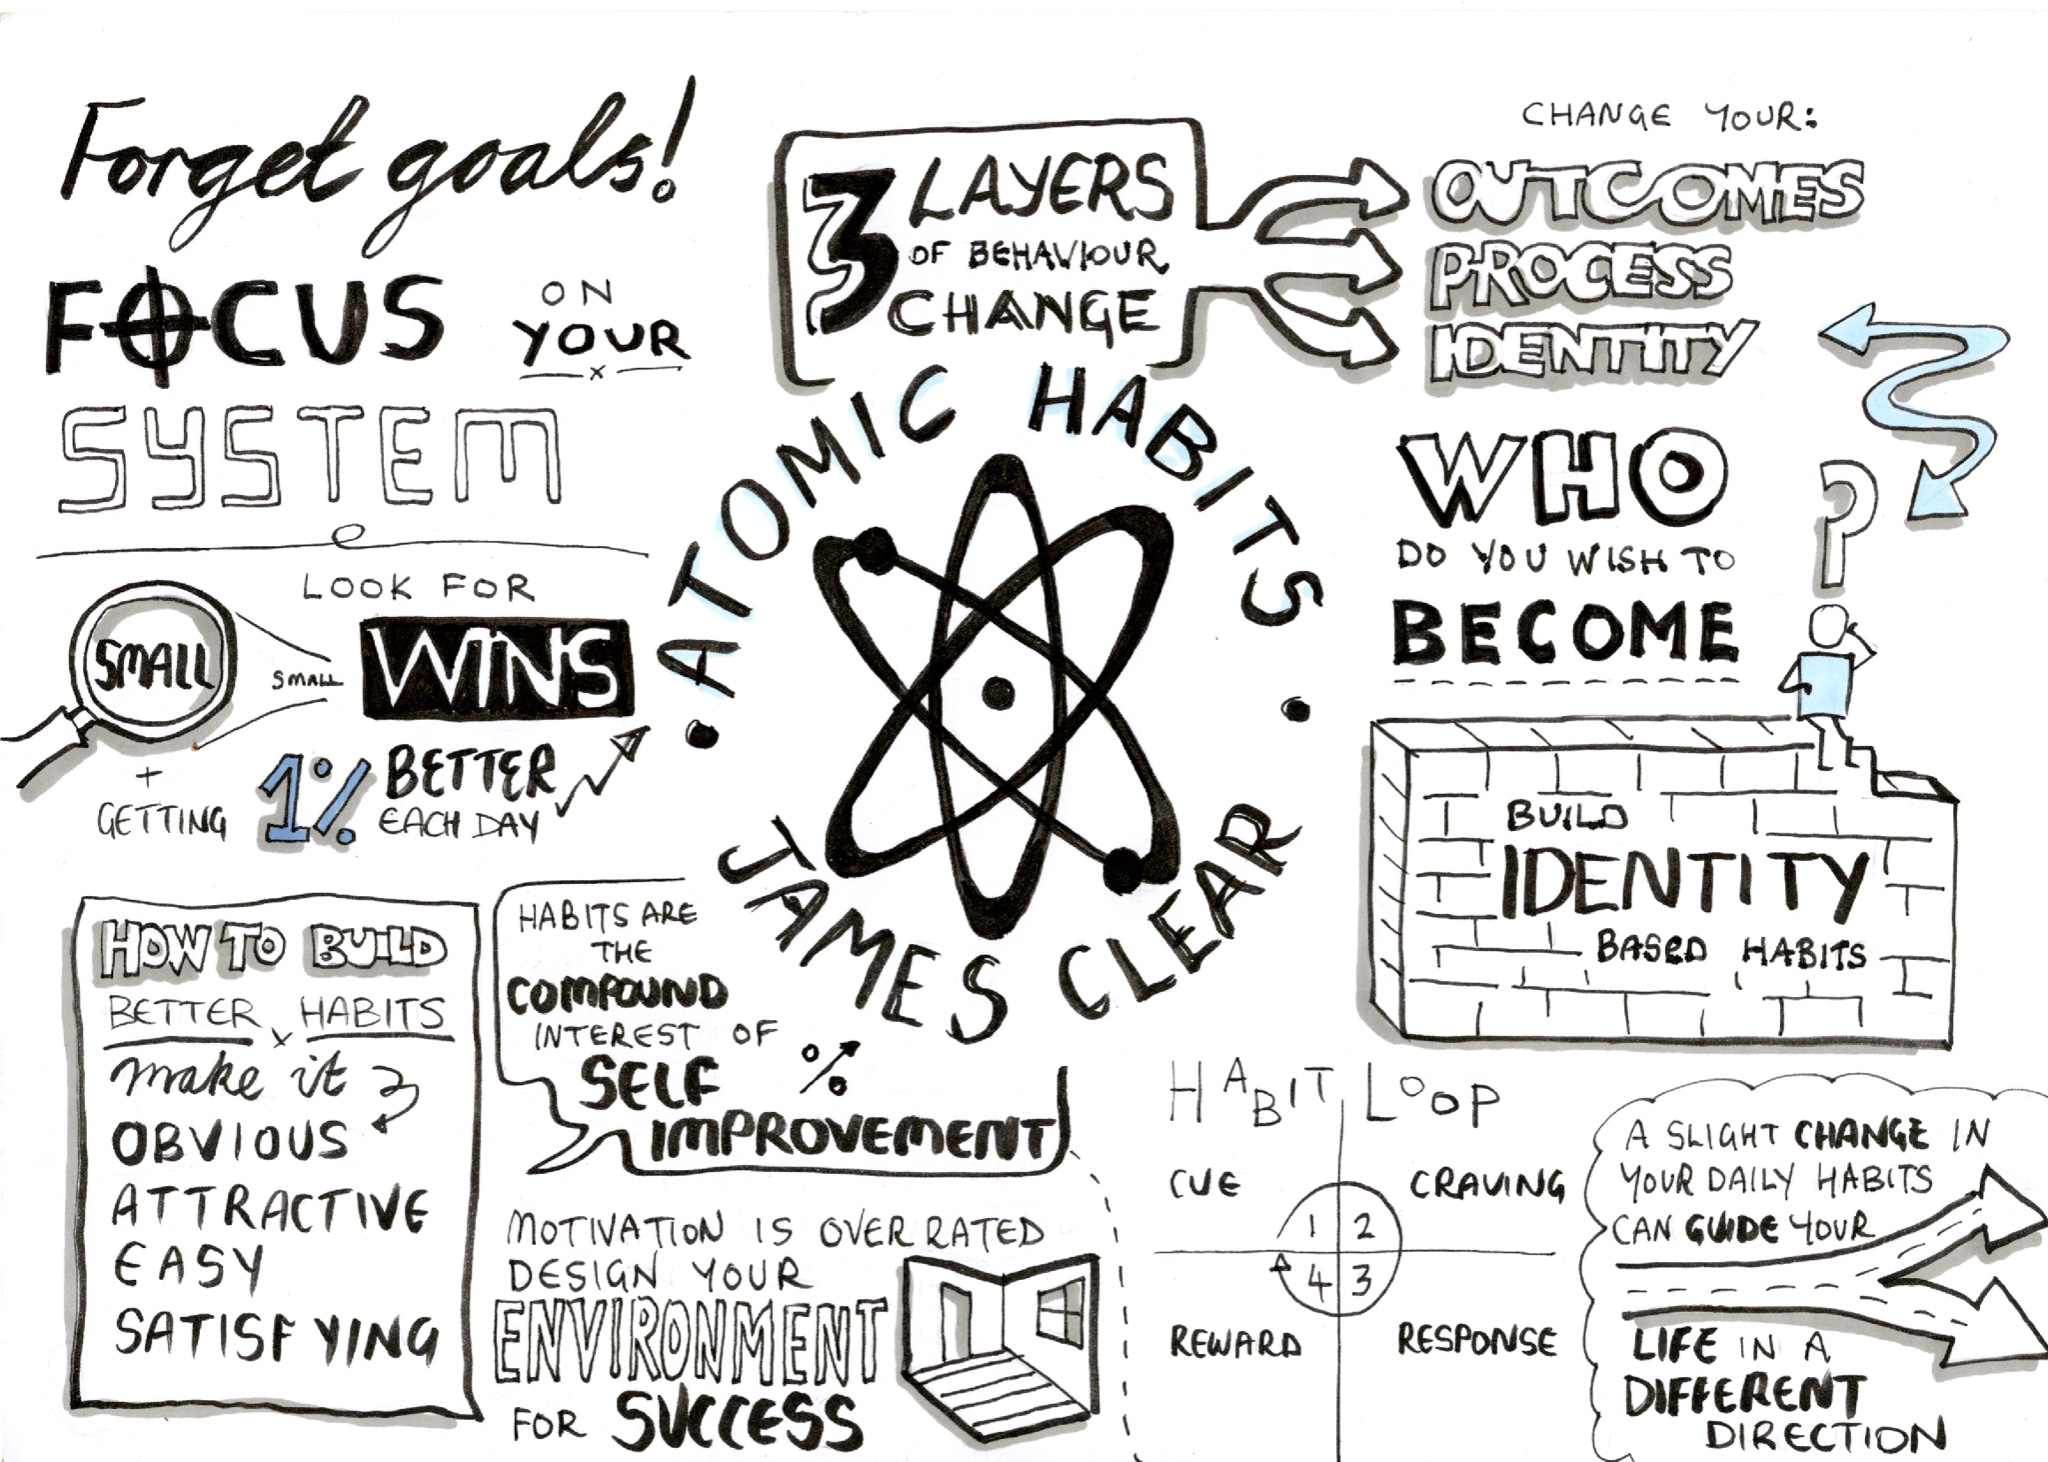 Forget goals!
FOCUS ON
YOUR
SYSTEM
LOOK FOR
SMALL SMALL WINS
+
GETTING 1% BETTER
EACH DAY
3 LAYERS
OF BEHAVIOUR
CHANGE
CHANGE YOUR:
OUTCOMES
PROCESS
IDENTITY
ATOMIC HABITS
JAMES CLEAR
WHO
DO YOU WISH TO
BECOME
?
BUILD
IDENTITY
BASED HABITS
HOW TO BUILD
BETTER x HABITS
make it
OBVIOUS
ATTRACTIVE
EASY
SATISFYING
HABITS ARE
THE
COMPOUND
INTEREST OF
SELF %
IMPROVEMENT
MOTIVATION IS OVERRATED
DESIGN YOUR
ENVIRONMENT
FOR SUCCESS
HABIT LOOP
CUE CRAVING
1 2
4 3
REWARD RESPONSE
A SLIGHT CHANGE IN
YOUR DAILY HABITS
CAN GUIDE YOUR
LIFE IN A
DIFFERENT
DIRECTION